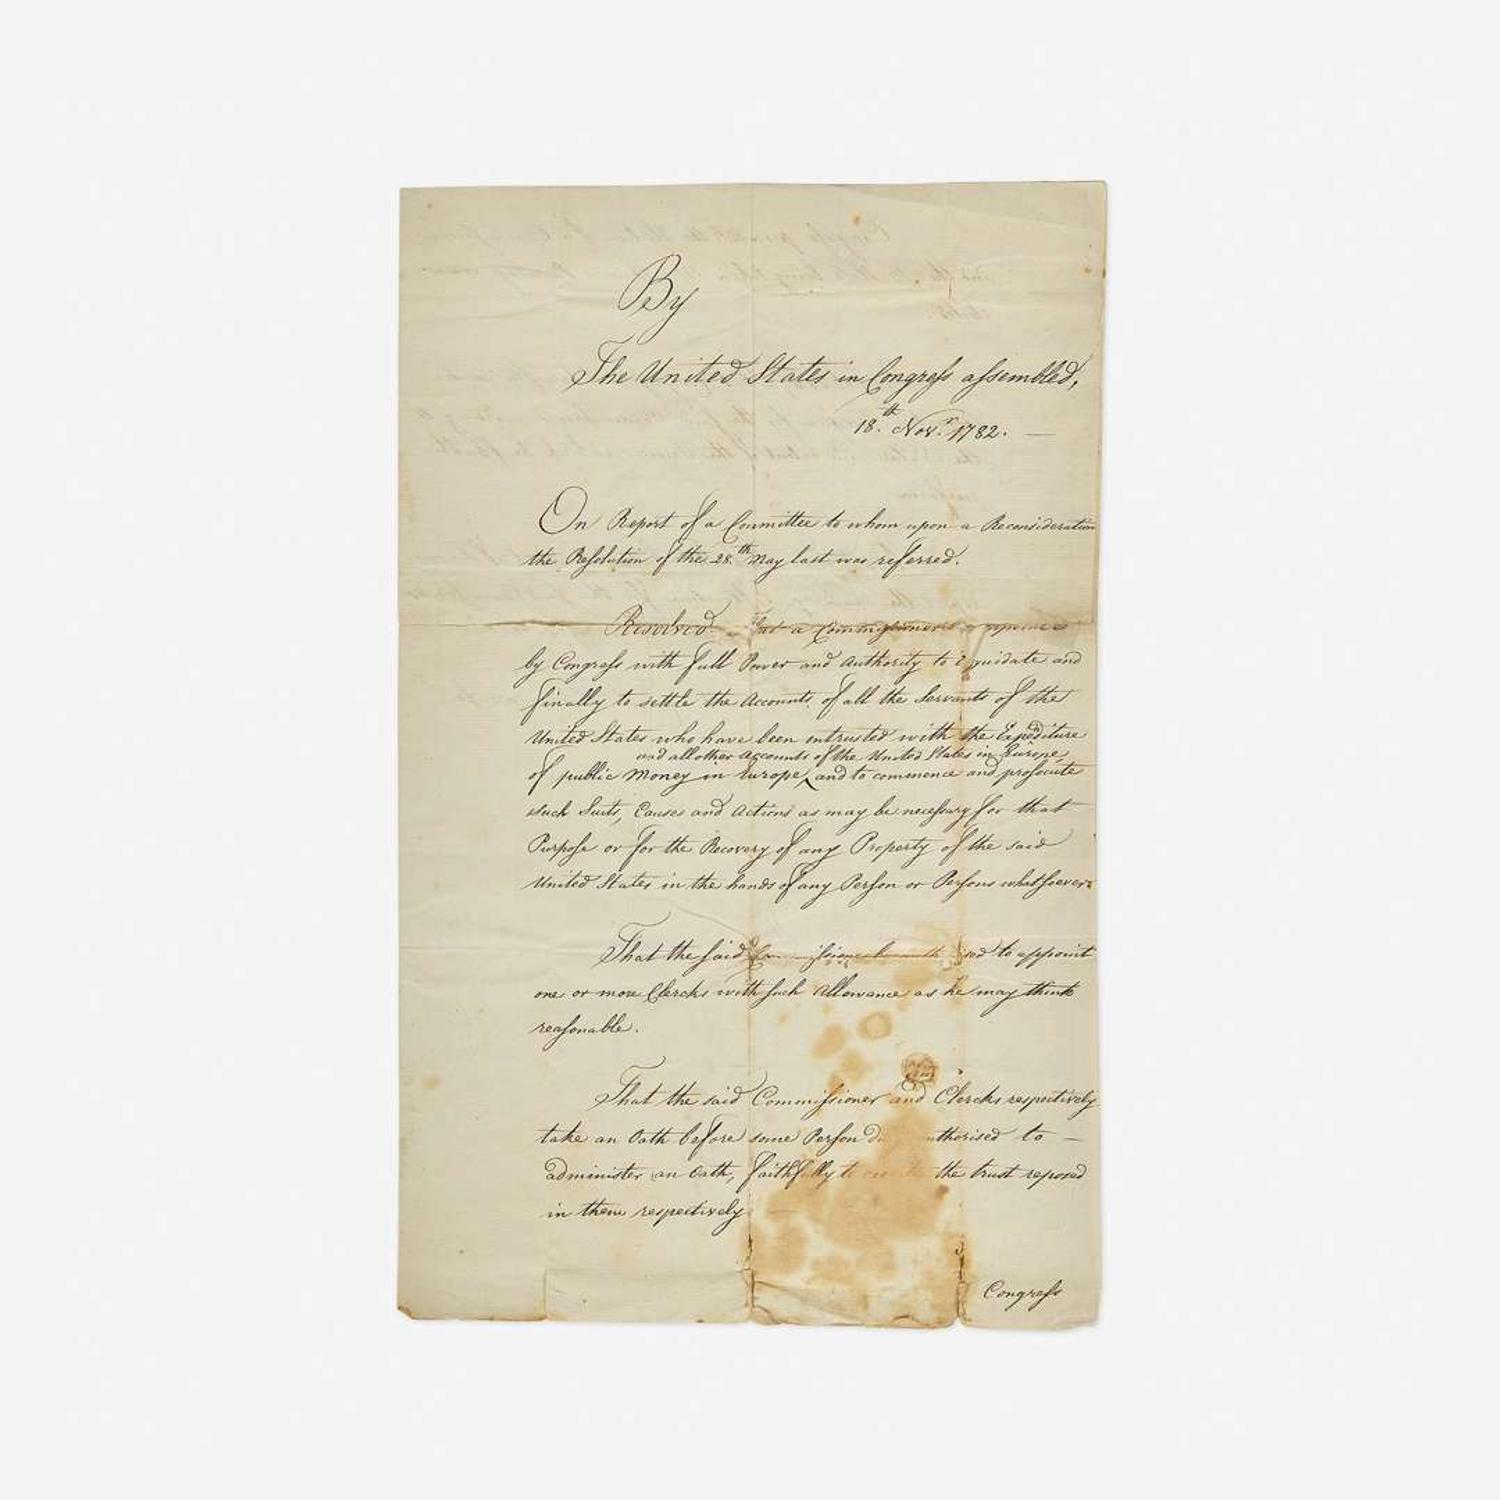 By
The United States in Congress assembled,
18.th Novr. 1782. —
On Report of a Committee to whom upon a Reconsideration
the Resolution of the 28.th May last was referred.
Resolved. That a Commissioner be appointed
by Congress with full Power and Authority to liquidate and
finally to settle the Accounts of all the Servants of the
United States who have been entrusted with the Expediture
and all other Accounts of the United States in Europe,
of public Money in Europe, and to commence and prosecute
such Suits, Causes and Actions as may be necessary for that
Purpose or for the Recovery of any Property of the said
United States in the hands of any Person or Persons whatsoever.
That the said to appoint
one or more Clercks with such Allowance as he may think
reasonable.
That the said Commissioner and Clercks respectively
take an Oath before some Person authorised to —
administer an Oath, faithfully to the trust reposed
in them respectively
Congress